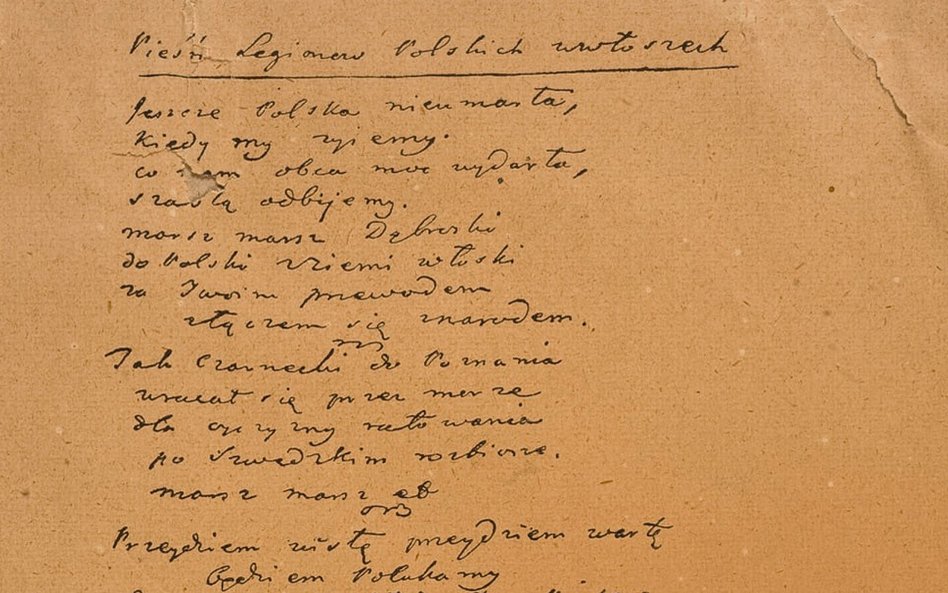 Pieśń Legionow Polskich wwłoszech
Jeszcze Polska nieumarła,
kiedy my żyiemy.
co nam obca moc wydarła,
szablą odbijemy.
marsz marsz Dąbroski
do Polski zziemi włoski
za Twoim przewodem
złączem się znarodem.
Jak Czarnecki do Poznania
wracał się przez morze
dla oyczyzny ratowania
po Szwedzkim rozbiorze.
marsz marsz
Przeydziem wisłę przeydziem wartę
będziem Polakamy